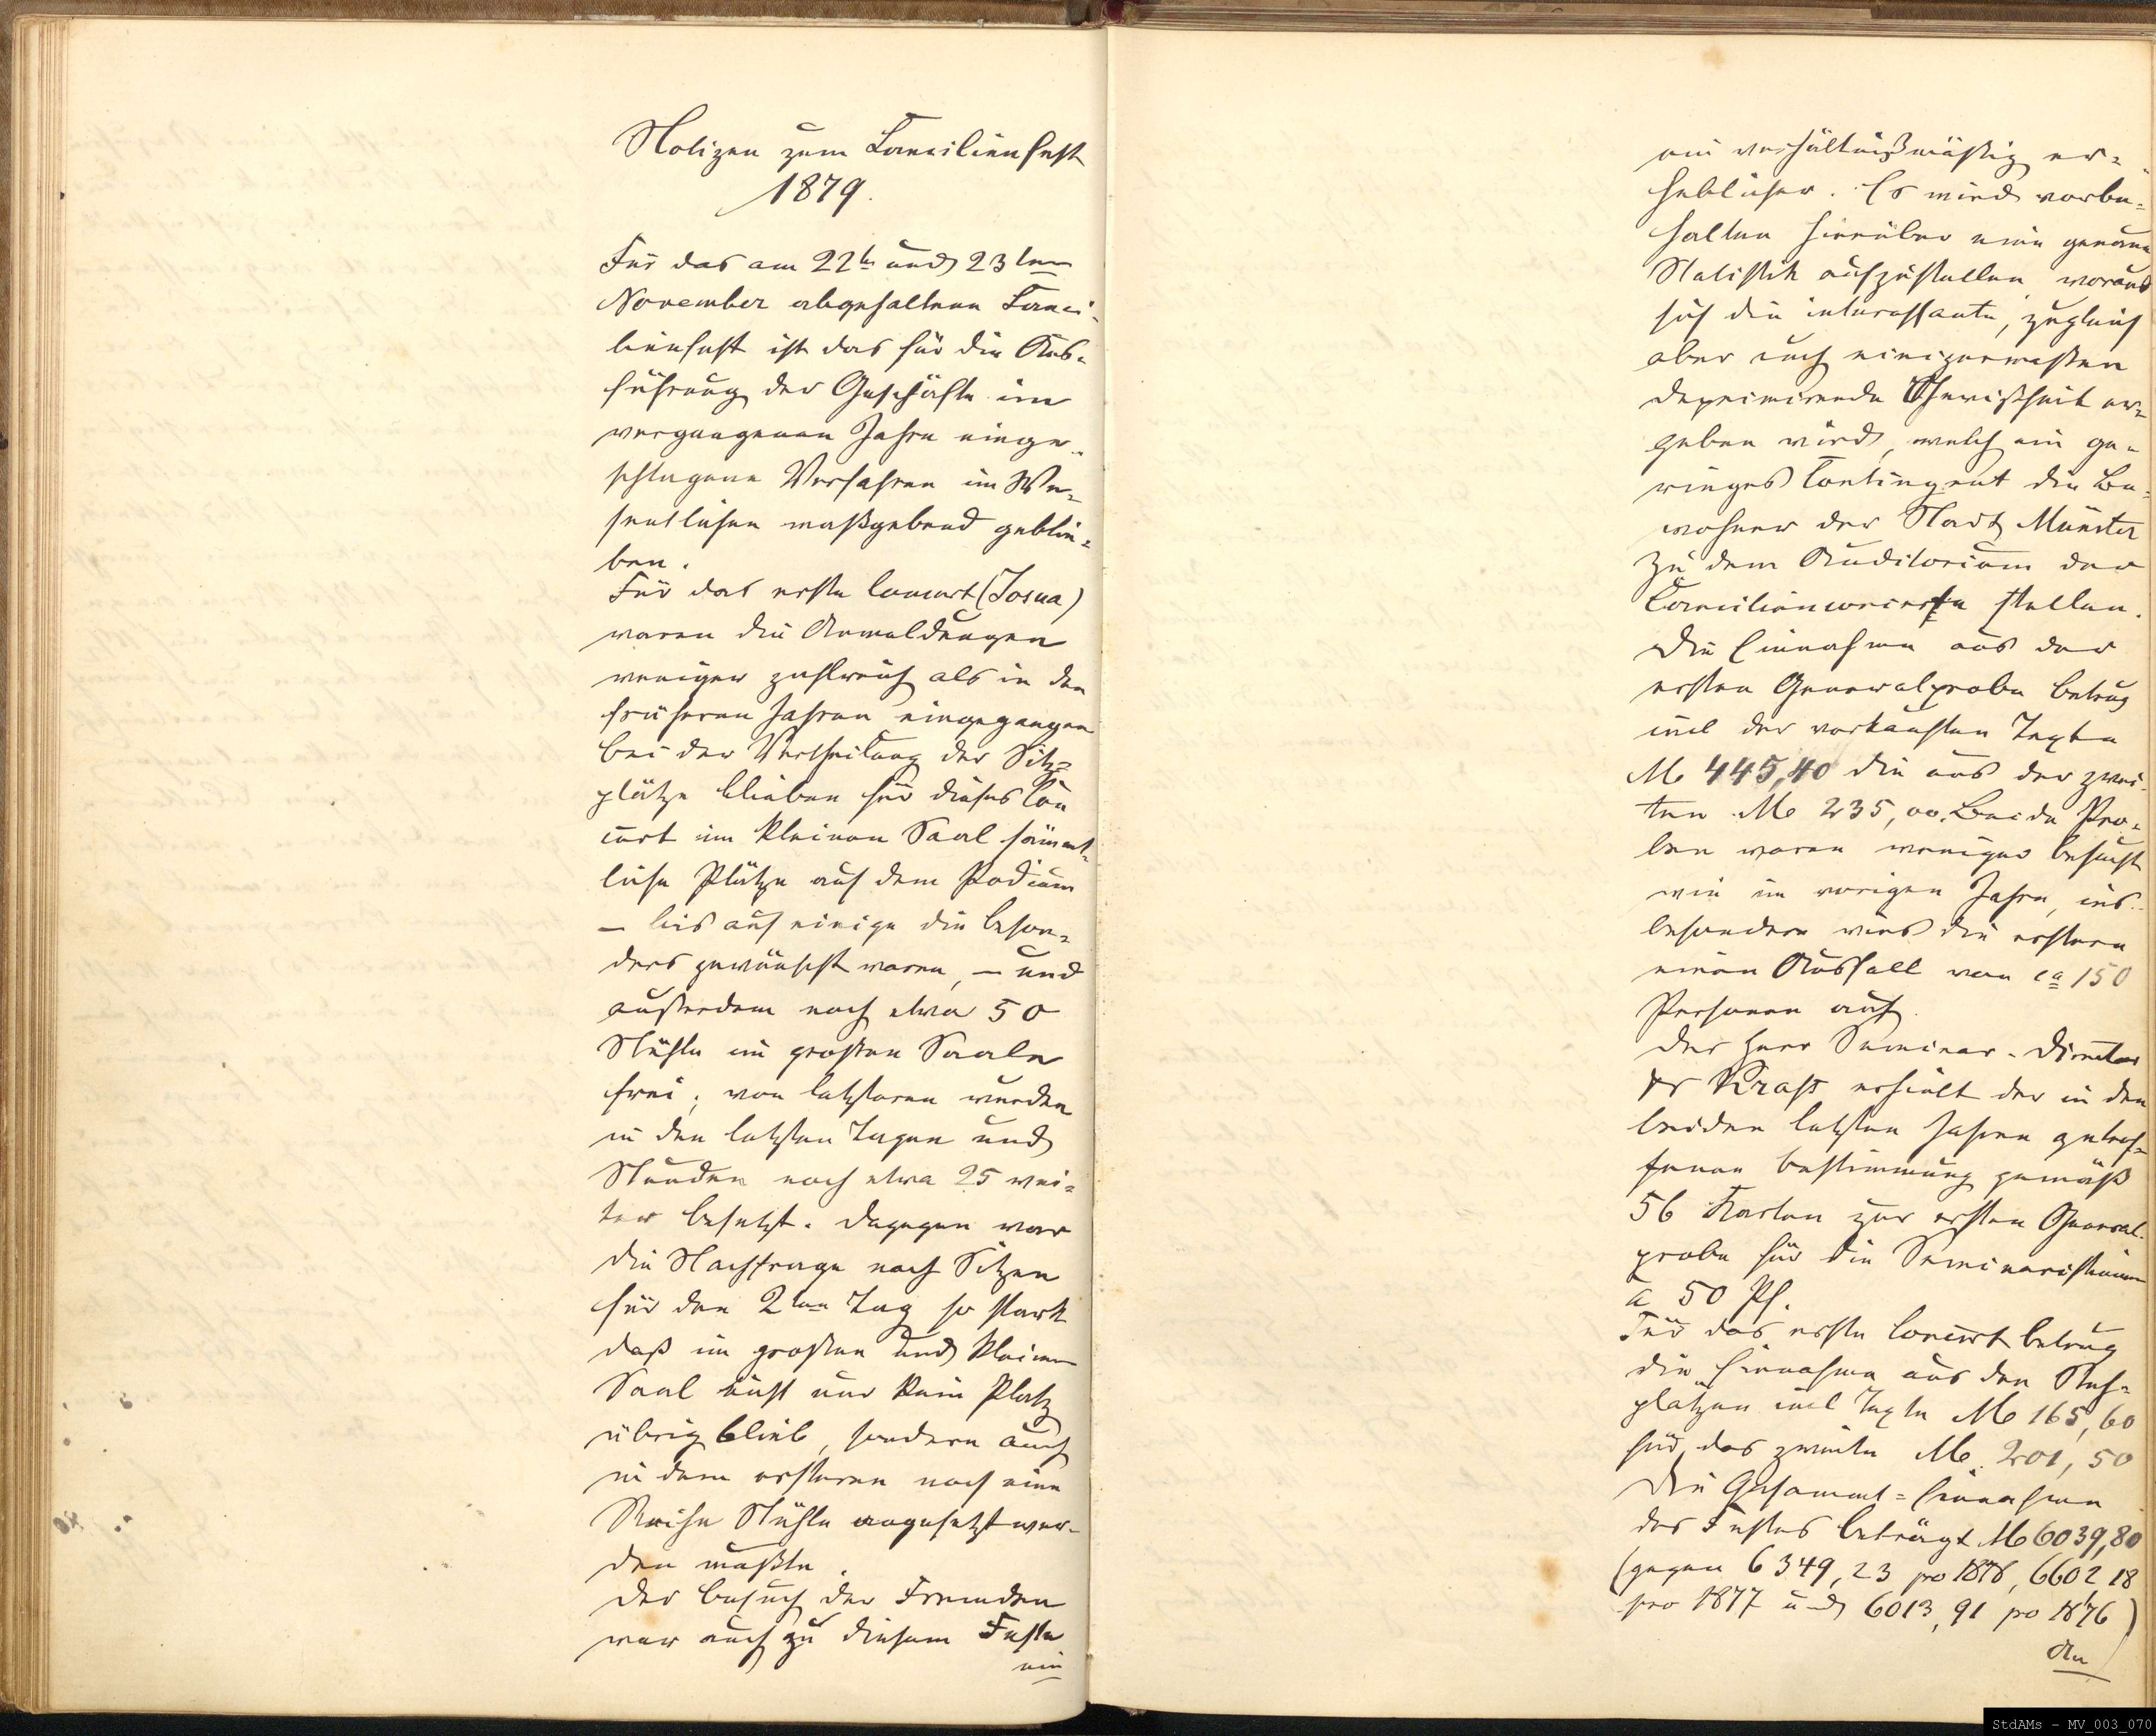 Notizen zum Caecilienfest
1879.
Für das am 22ten und 23ten
November abgehaltene Caeci-
lienfest ist das für die Aus-
führung der Geschäfte im
vergangenen Jahre einge-
schlagene Verfahren im We-
sentlichen maßgebend geblie-
ben.
Für das erste Concert (Josua)
waren die Anmeldungen
weniger zahlreich als in den
früheren Jahren eingegangen
bei der Vertheilung der Sitz-
plätze blieben für dieses Con
cert im kleinen Saal sämmt-
liche Plätze auf dem Podium
– bis auf einige die beson-
ders gewünscht waren, – und
außerdem noch etwa 50
Stühle im großen Saale
frei; von letzteren wurden
in den letzten Tagen und
Stunden noch etwa 25 wei-
ter besetzt. Dagegen war
die Nachfrage nach Sitzen
für den 2ten Tag so stark
daß im großen und kleinen
Saal nicht nur kein Platz
übrig blieb, sondern auch
in dem ersteren noch eine
Reihe Stühle angesetzt wer-
den mußte.
Der Besuch der Fremden
war auch zu diesem Feste
ein
ein verhältnißmäßig er-
heblicher. Es wird vorbe-
halten hierüber eine genaue
Statistik aufzustellen woraus
sich die interessante, zugleich
aber auch einigermaßen
deprimirende Gewißheit er-
geben wird, welch ein ge-
ringes Contingent die Be-
wohner der Stadt Münster
zu dem Auditorium der
Caecilienconcerte stellen.
Die Einnahme aus der
ersten Generalprobe betrug
incl der verkauften Texte
M 445,40 die aus der zwei-
ten M 235,00. Beide Pro-
ben waren weniger besucht
wie im vorigen Jahre, ins-
besondere wies die erstere
einen Ausfall von ca 150
Personen auf.
Der Herr Seminar-Director
Dr Kraß erhielt der in den
beiden letzten Jahren getrof-
fenen Bestimmung gemäß
56 Karten zur ersten General-
probe für die Seminaristinnen
a 50 Pf.
Für das erste Concert betrug
die Einnahme aus den Steh-
plätzen incl Texte M 165,60
für das zweite M 201,50
Die Gesammt-Einnahme
des Festes beträgt M 6039,80
(gegen 6349,23 pro 1878, 6602,18
pro 1877 und 6013,91 pro 1876)
An
StdAMs - MV_003_070